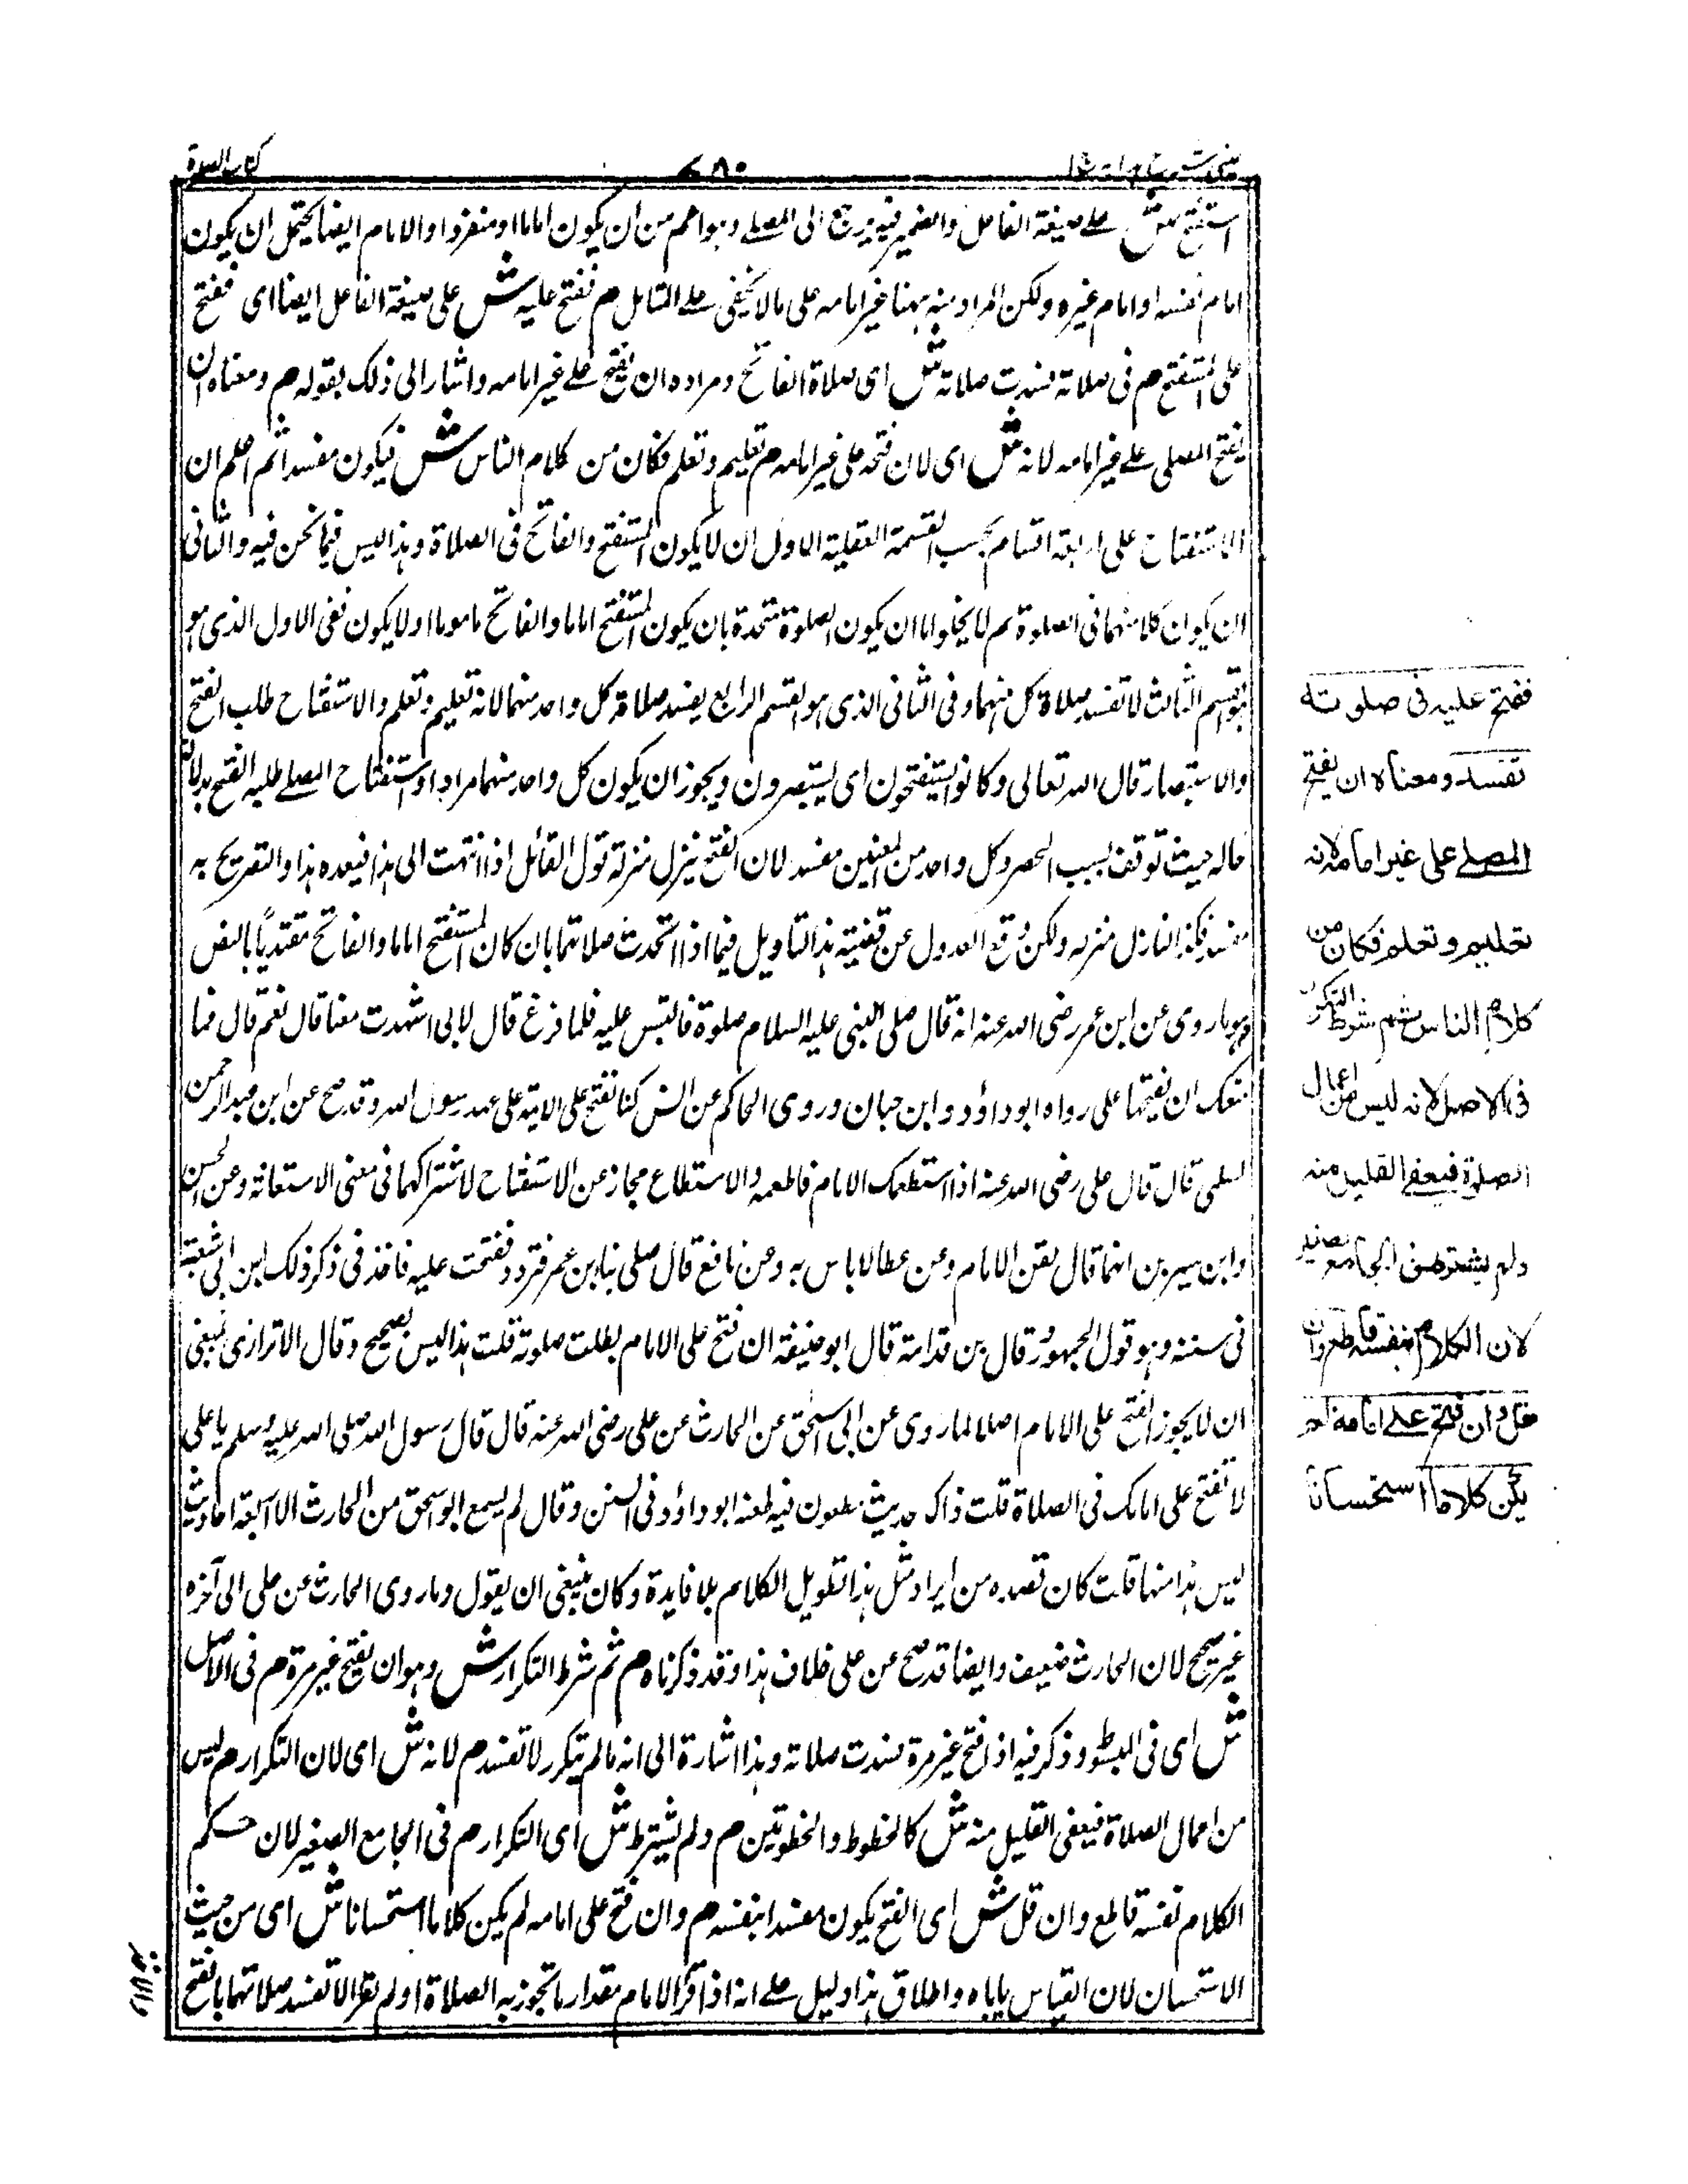 كتاب الصلاة
٧٨٠
استفتح ش على صيغة الفاعل والضمير فيه يرجع الى المصلى وهو اعم من ان يكون اماما او منفردا والامام ايضا يحتمل ان يكون
امام نفسه او امام غيره ولكن المراد منه ههنا غير امامه على ما لا يخفى على المتامل م ففتح عليه ش على صيغة الفاعل ايضا اى ففتح
على المستفتح م فى صلاته فسدت صلاته ش اى صلاة الفاتح ومراده ان يفتح على غير امامه واشار الى ذلك بقوله م ومعناه ان
يفتح المصلى على غير امامه لانه ش اى لان فتحه على غير امامه م تعليم وتعلم فكان من كلام الناس ش فيكون مفسدا ثم اعلم ان
الاستفتاح على اربعة اقسام بحسب القسمة العقلية الاول ان لا يكون المستفتح والفاتح فى الصلاة وهذا ليس فيما نحن فيه والثانى
ان يكون كلا منهما فى الصلوة ثم لا يخلو اما ان يكون الصلوة متحدة بان يكون المستفتح اماما والفاتح ماموما اولا يكون ففى الاول الذى هو
هو القسم الثالث لا تفسد صلاة كل منهما وفى الثانى الذى هو القسم الرابع يفسد صلاة كل واحد منهما لانه تعليم وتعلم والاستفتاح طلب الفتح
والاستبصار قال الله تعالى وكانوا يستفتحون اى يستبصرون ويجوز ان يكون كل واحد منهما مرادا واستفتاح المصلى طلبه الفتح بدلالة
حاله حيث توقف بسبب الحصر وكل واحد من المعنيين مفسد لان الفتح ينزل منزلة قول القائل اذا انتهت الى هذا فبعده هذا والتصريح به
مفسد فكذا النازل منزله ولكن وقع العدول عن قضيته هذا التاويل فيما اذا اتحدت صلاتهما بان كان المستفتح اماما والفاتح مقتديا بالنص
وهو ما روى عن ابن عمر رضى الله عنه انه قال صلى النبى عليه السلام صلوة فالتبس عليه فلما فرغ قال لابى اشهدت معنا قال نعم قال فما
منعك ان تفتحها على رواه ابو داؤد وابن حبان وروى الحاكم عن انس كنا نفتح على الائمة على عهد رسول الله وقد صح عن ابن عبد الرحمن
السلمى قال قال على رضى الله عنه اذا استطعمك الامام فاطعمه والاستطاع مجاز عن الاستفتاح لاشتراكهما فى معنى الاستعانة وعن الحسن
وابن سيرين انهما قال لقن الامام وعن عطا لا باس به وعن نافع قال صلى بنا ابن عمر فتردد ففتحت عليه فاخذ فى ذكر ذلك ابن ابى شعبة
فى سننه وهو قول الجمهور قال بن قدامة قال ابو حنيفة ان فتح على الامام بطلت صلوته قلت هذا ليس بصحيح وقال الاترازى ينبغى
ان لا يجوز الفتح على الامام اصلا لما روى عن ابى اسحق عن الحارث عن على رضى الله عنه قال قال رسول الله صلى الله عليه وسلم يا على
لا تفتح على امامك فى الصلاة قلت ذاك حديث مطعون فيه طعنه ابو داؤد فى السنن وقال لم يسمع ابو اسحق من الحارث الا اربعة احاديث
ليس هذا منها قلت كان قصده من ايراد مثل هذا تطويل الكلام بلا فايدة وكان ينبغى ان يقول وما روى الحارث عن على الى آخره
غير صحيح لان الحارث ضعيف وايضا قد صح عن على خلاف هذا وقد ذكرناه م ثم شرط التكرار ش وهو ان يفتح غير مرة م فى الاصل
ش اى فى المبسوط وذكر فيه اذا فتح غير مرة فسدت صلاته وهذا اشارة الى انه ما لم يتكرر لا تفسد م لانه ش اى لان التكرار م ليس
من اعمال الصلاة فيعفى القليل منه ش كالخطوط والخطوتين م ولم يشترط ش اى التكرار م فى الجامع الصغير لان حكم
الكلام نفسه قاطع وان قل ش اى الفتح يكون مفسدا بنفسه م وان فتح على امامه لم يكن كلاما استحسانا ش اى من حيث
الاستحسان لان القياس ياباه واطلاق هذا دليل على انه اذا قرأ الامام مقدار ما تجوز به الصلاة او لم يقرا لا تفسد صلاتهما بالفتح
ففتح عليه فى صلوته
تفسد ومعناه ان يفتح
المصلے على غير امامه لانه
تعليم وتعلم فكان من
كلام الناس ثم شرط التكرار
فى الاصل لانه ليس من اعمال
الصلوة فيعفى القليل منه
ولم يشترط فى الجامع الصغير
لان الكلام بنفسه قاطع وان
قل وان فتح على امامه لم
يكن كلاما استحسانا